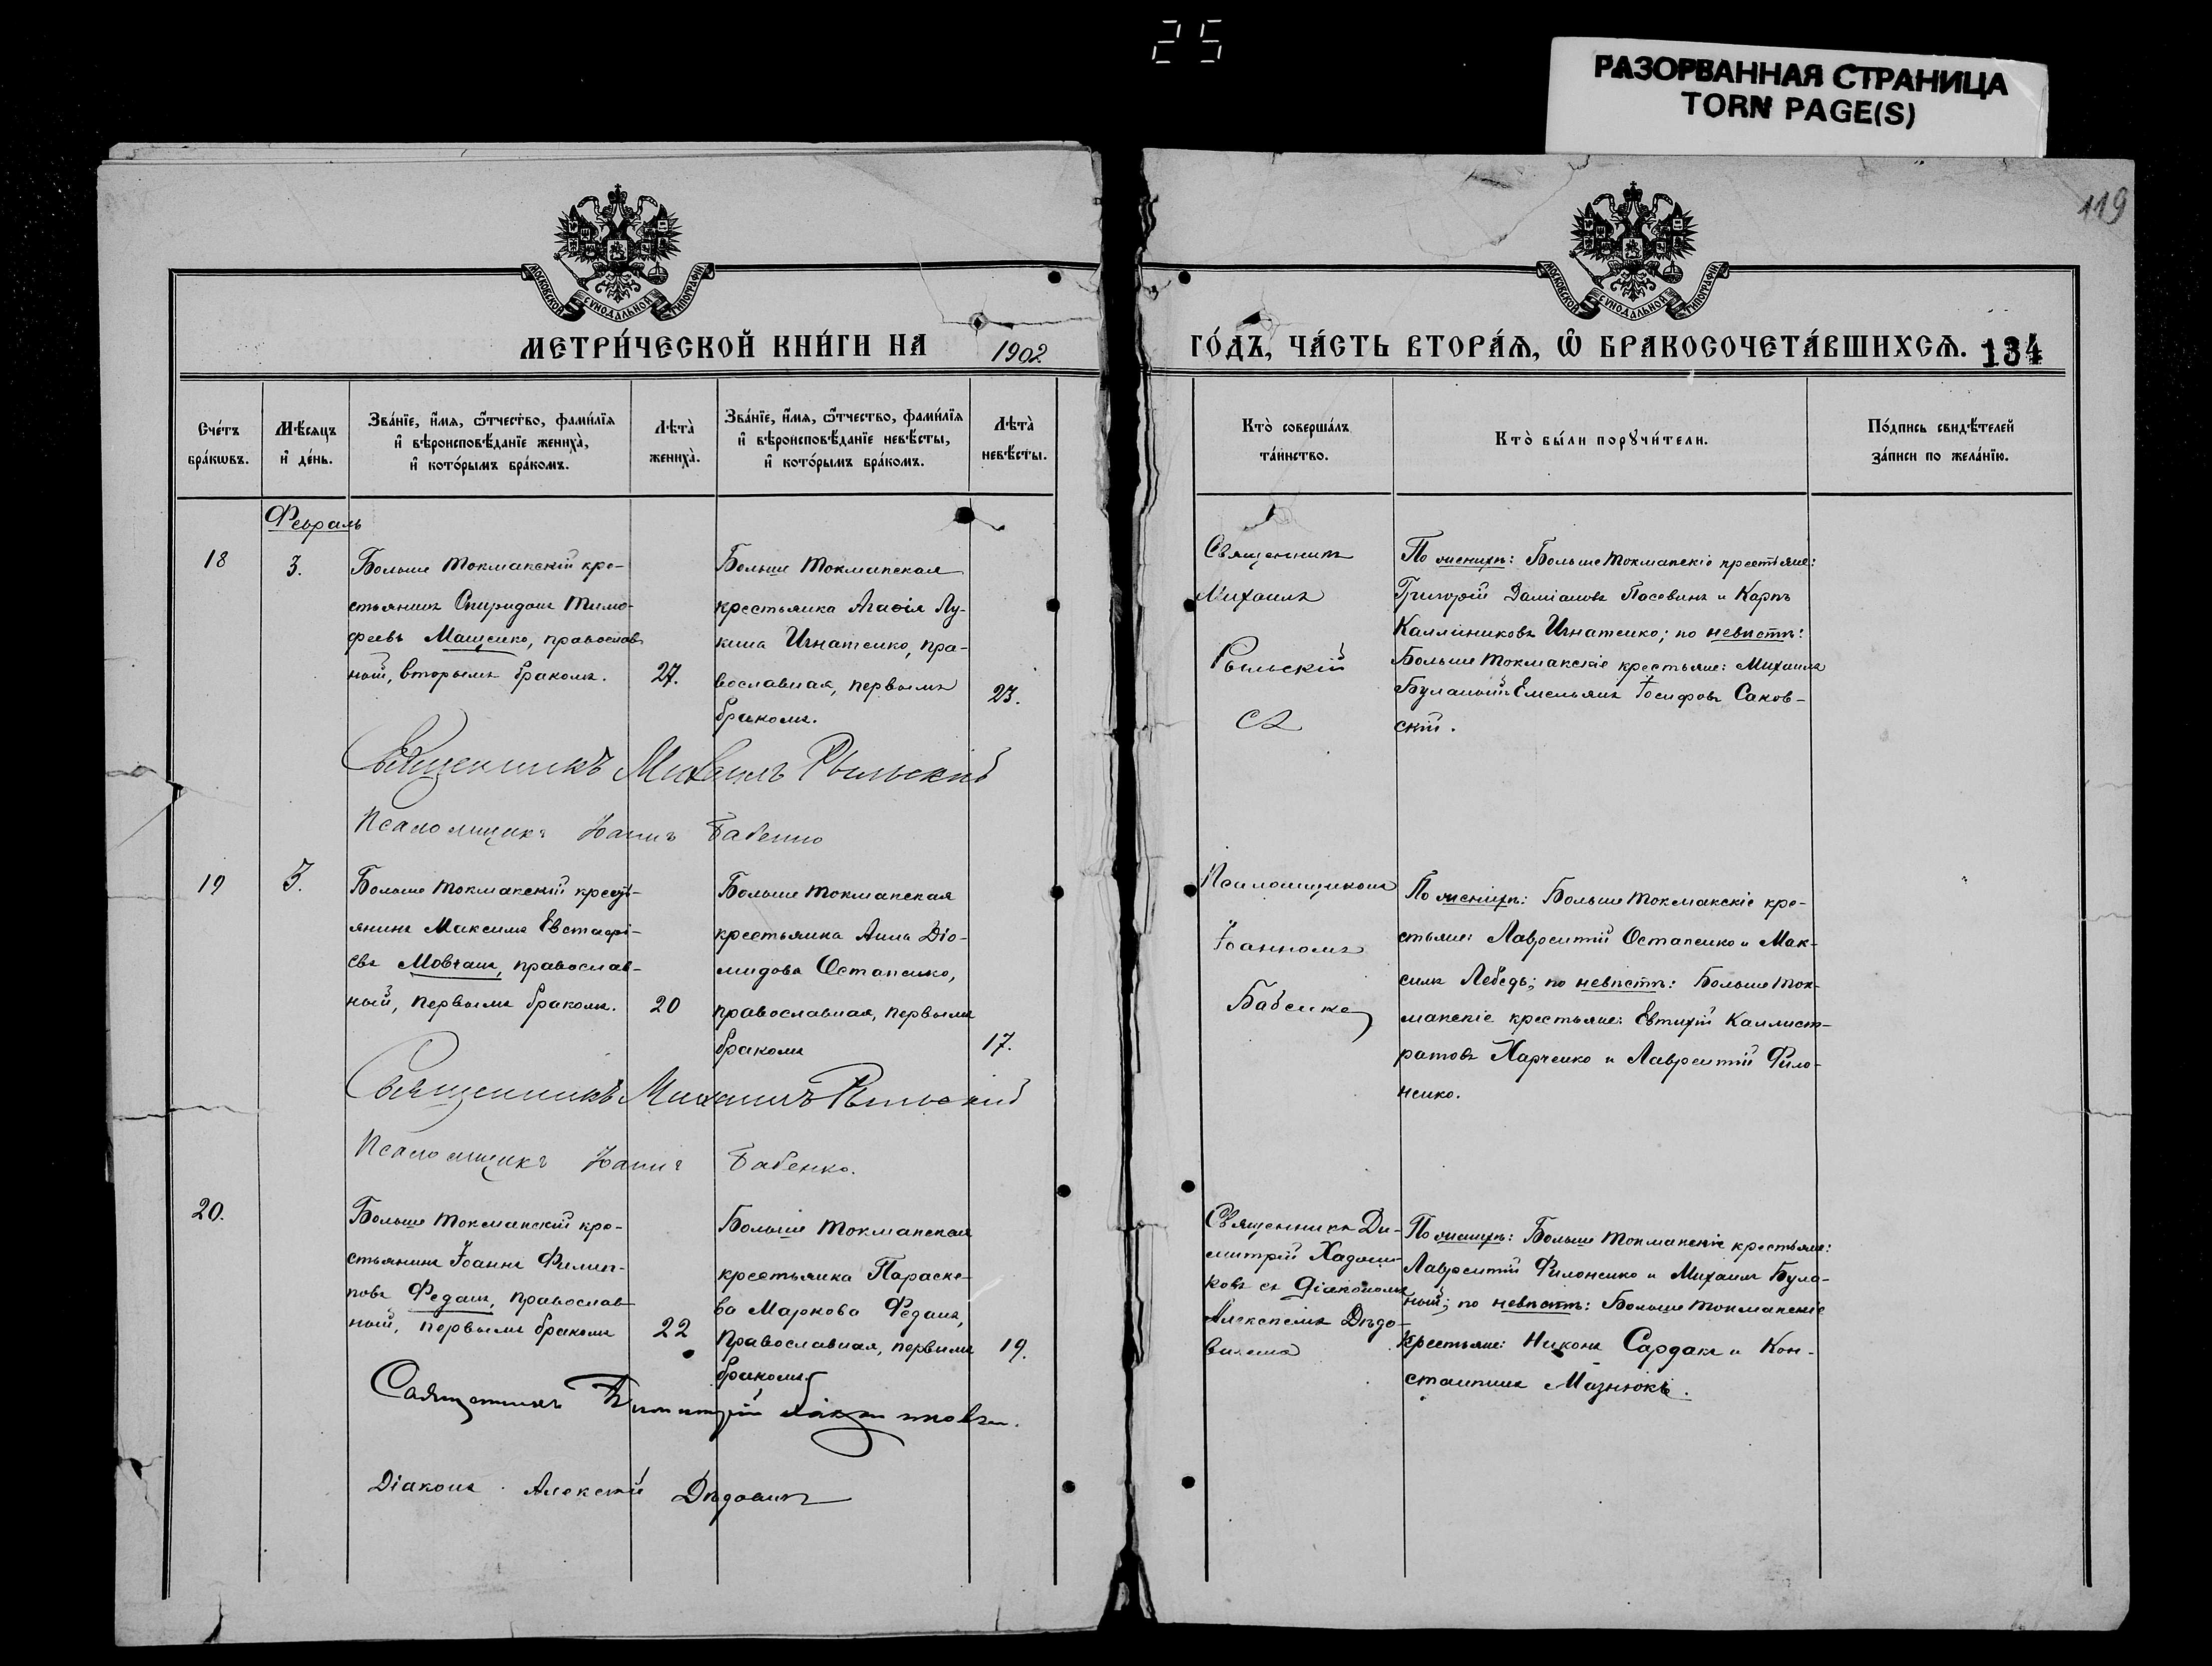 25
РАЗОРВАННАЯ СТРАНИЦА
TORN PAGE(S)
119
МОСКОВСКОЙ СѴНОДАЛЬНОЙ ТИПОГРАФІИ
МОСКОВСКОЙ СѴНОДАЛЬНОЙ ТИПОГРАФІИ
МЕТРИ́ЧЕСКОЙ КНИ́ГИ НА 1902 ГО́ДЪ, ЧА́СТЬ ВТОРА́Ѧ, Ѡ҆ БРАКОСОЧЕТА́ВШИХСѦ. 134
Сче́тъ
бра́кѡвъ.
Мѣ́сяцъ
и҆ де́нь.
Зва́нїе, и҆́мѧ, ѻ҆́тчество, фами́лїѧ
и҆ вѣроисповѣ́данїе жениха̀,
и҆ кото́рымъ бра́комъ.
Лѣта̀
жениха̀.
Зва́нїе, и҆́мѧ, ѻ҆́тчество, фами́лїѧ
и҆ вѣроисповѣ́данїе невѣ́сты,
и҆ кото́рымъ бра́комъ.
Лѣта̀
невѣ́сты.
Кто̀ соверша́лъ
та́инство.
Кто̀ бы́ли порꙋчи́тели.
По́дпись свидѣ́телей
за́писи по жела́нїю.
Февраль
18
3.
Больше Токмакскій кре-
стьянинъ Спиридонъ Тимо-
феевъ Мащенко, православ-
ный, вторымъ бракомъ.
27.
Больше Токмакская
крестьянка Агафія Лу-
кина Игнатенко, пра-
вославная, первымъ
бракомъ.
23.
Священникъ
Михаилъ
Рыльскій
съ
По женихѣ: Больше Токмакскіе крестьяне:
Григорій Даміановъ Пасевинъ и Карпъ
Каллиниковъ Игнатенко; по невѣстѣ:
Больше Токмакскіе крестьяне: Михаилъ
Буланый Емельянъ Іосифовъ Саков-
скій.
Священникъ Михаилъ Рыльскій
Псаломщикъ Іоаннъ Бабенко
19
3.
Больше Токмакскій кресть-
янинъ Максимъ Евстафі-
евъ Мовчанъ, православ-
ный, первымъ бракомъ.
20
Больше Токмакская
крестьянка Анна Діо-
мидова Остапенко,
православная, первымъ
бракомъ
17.
Псаломщикомъ
Іоанномъ
Бабенко
По женихѣ: Больше Токмакскіе кре-
стьяне: Лаврентій Остапенко и Мак-
симъ Лебедь; по невѣстѣ: Больше Ток-
макскіе крестьяне: Евтихій Каллист-
ратовъ Харченко и Лаврентій Фило-
ненко.
Священникъ Михаилъ Рыльскій
Псаломщикъ Іоаннъ Бабенко.
20.
Больше Токмакскій кре-
стьянинъ Іоаннъ Филип-
повъ Феданъ, православ-
ный, первымъ бракомъ
22
Больше Токмакская
крестьянка Параске-
ва Маркова Феданъ,
православная, первымъ
бракомъ
19.
Священникъ Ди-
митрій
ковъ съ діакономъ
Алексѣемъ Дѣдо-
вичемъ
По женихѣ: Больше Токмакскіе крестьяне:
Лаврентій Филоненко и Михаилъ Була-
ный; по невѣстѣ: Больше Токмакскіе
крестьяне: Никонъ Сардакъ и Кон-
стантинъ Мазнюкъ.
Священникъ Димитрій
Діаконъ Алексѣй Дѣдовичъ